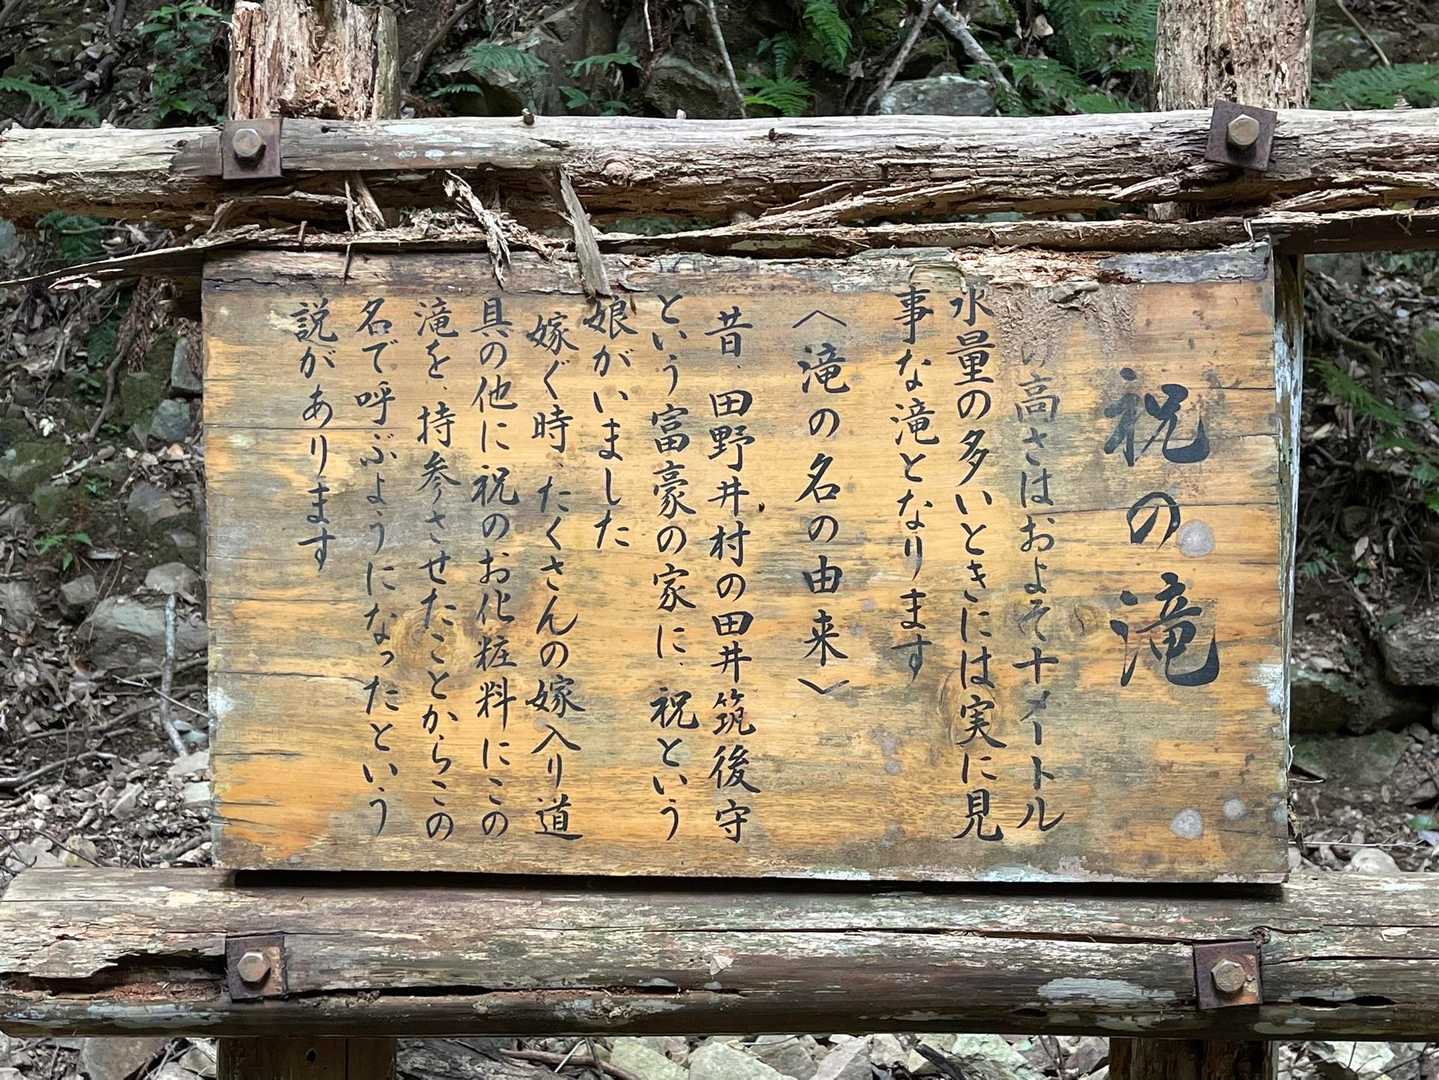 祝の滝
の高さはおよそ十メートル
水量の多いときには実に見
事な滝となります
〈滝の名の由来〉
昔、田野井村の田井筑後守
という富豪の家に、祝という
娘がいました
嫁ぐ時、たくさんの嫁入り道
具の他に祝のお化粧料にこの
滝を、持参させたことからこの
名で呼ぶようになったという
説があります